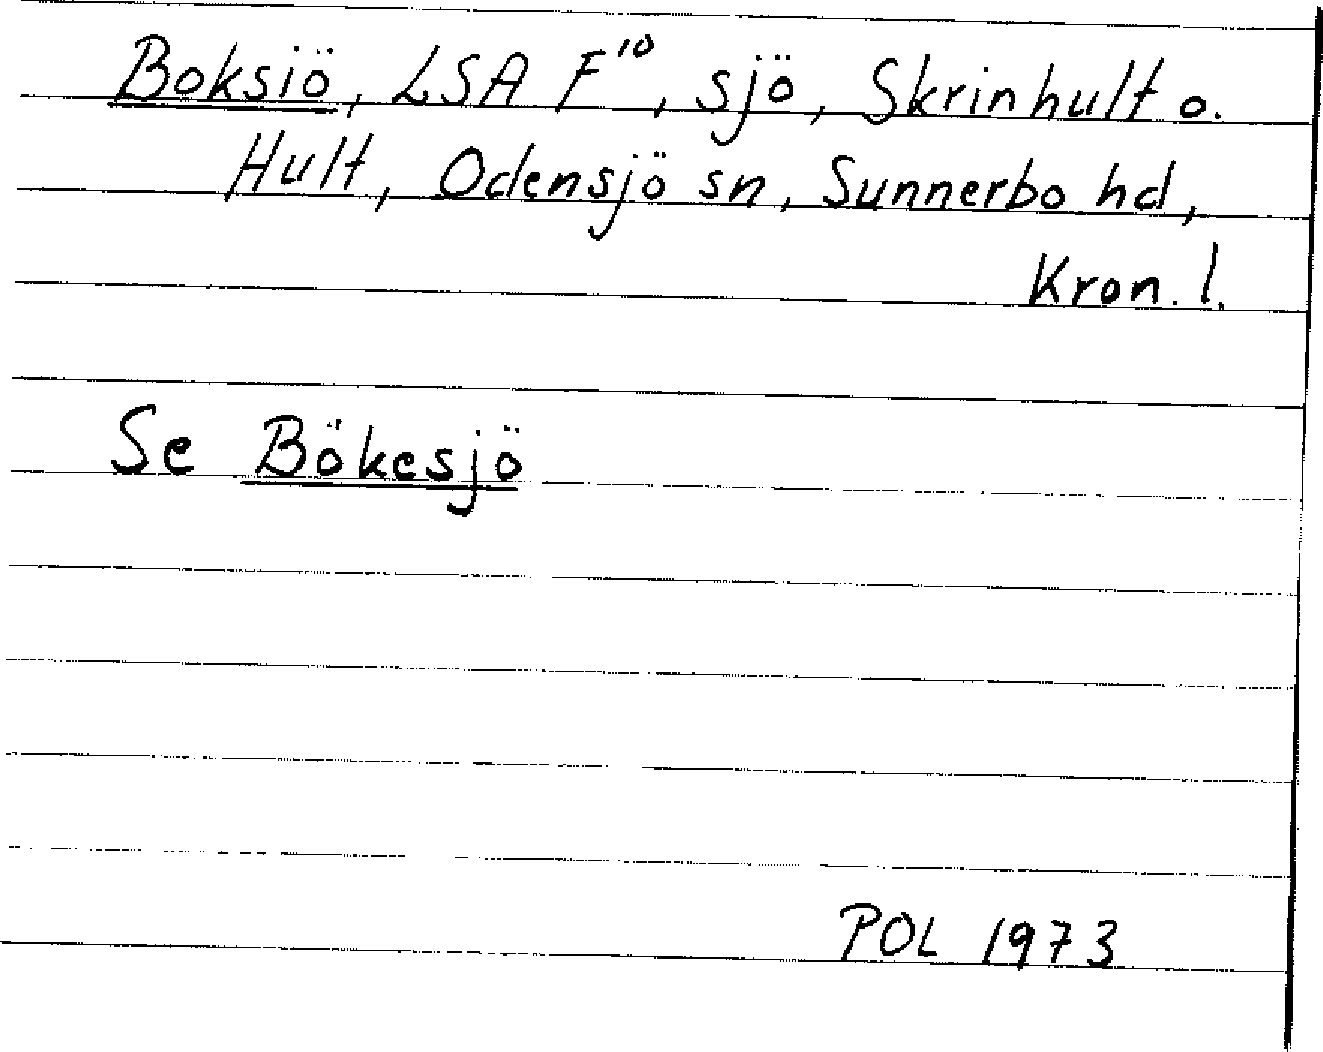 Boksiö, LSA F¹⁰, sjö, Skrinhult o.
Hult, Odensjö sn, Sunnerbo hd,
Kron. l.
Se Bökesjö
POL 1973